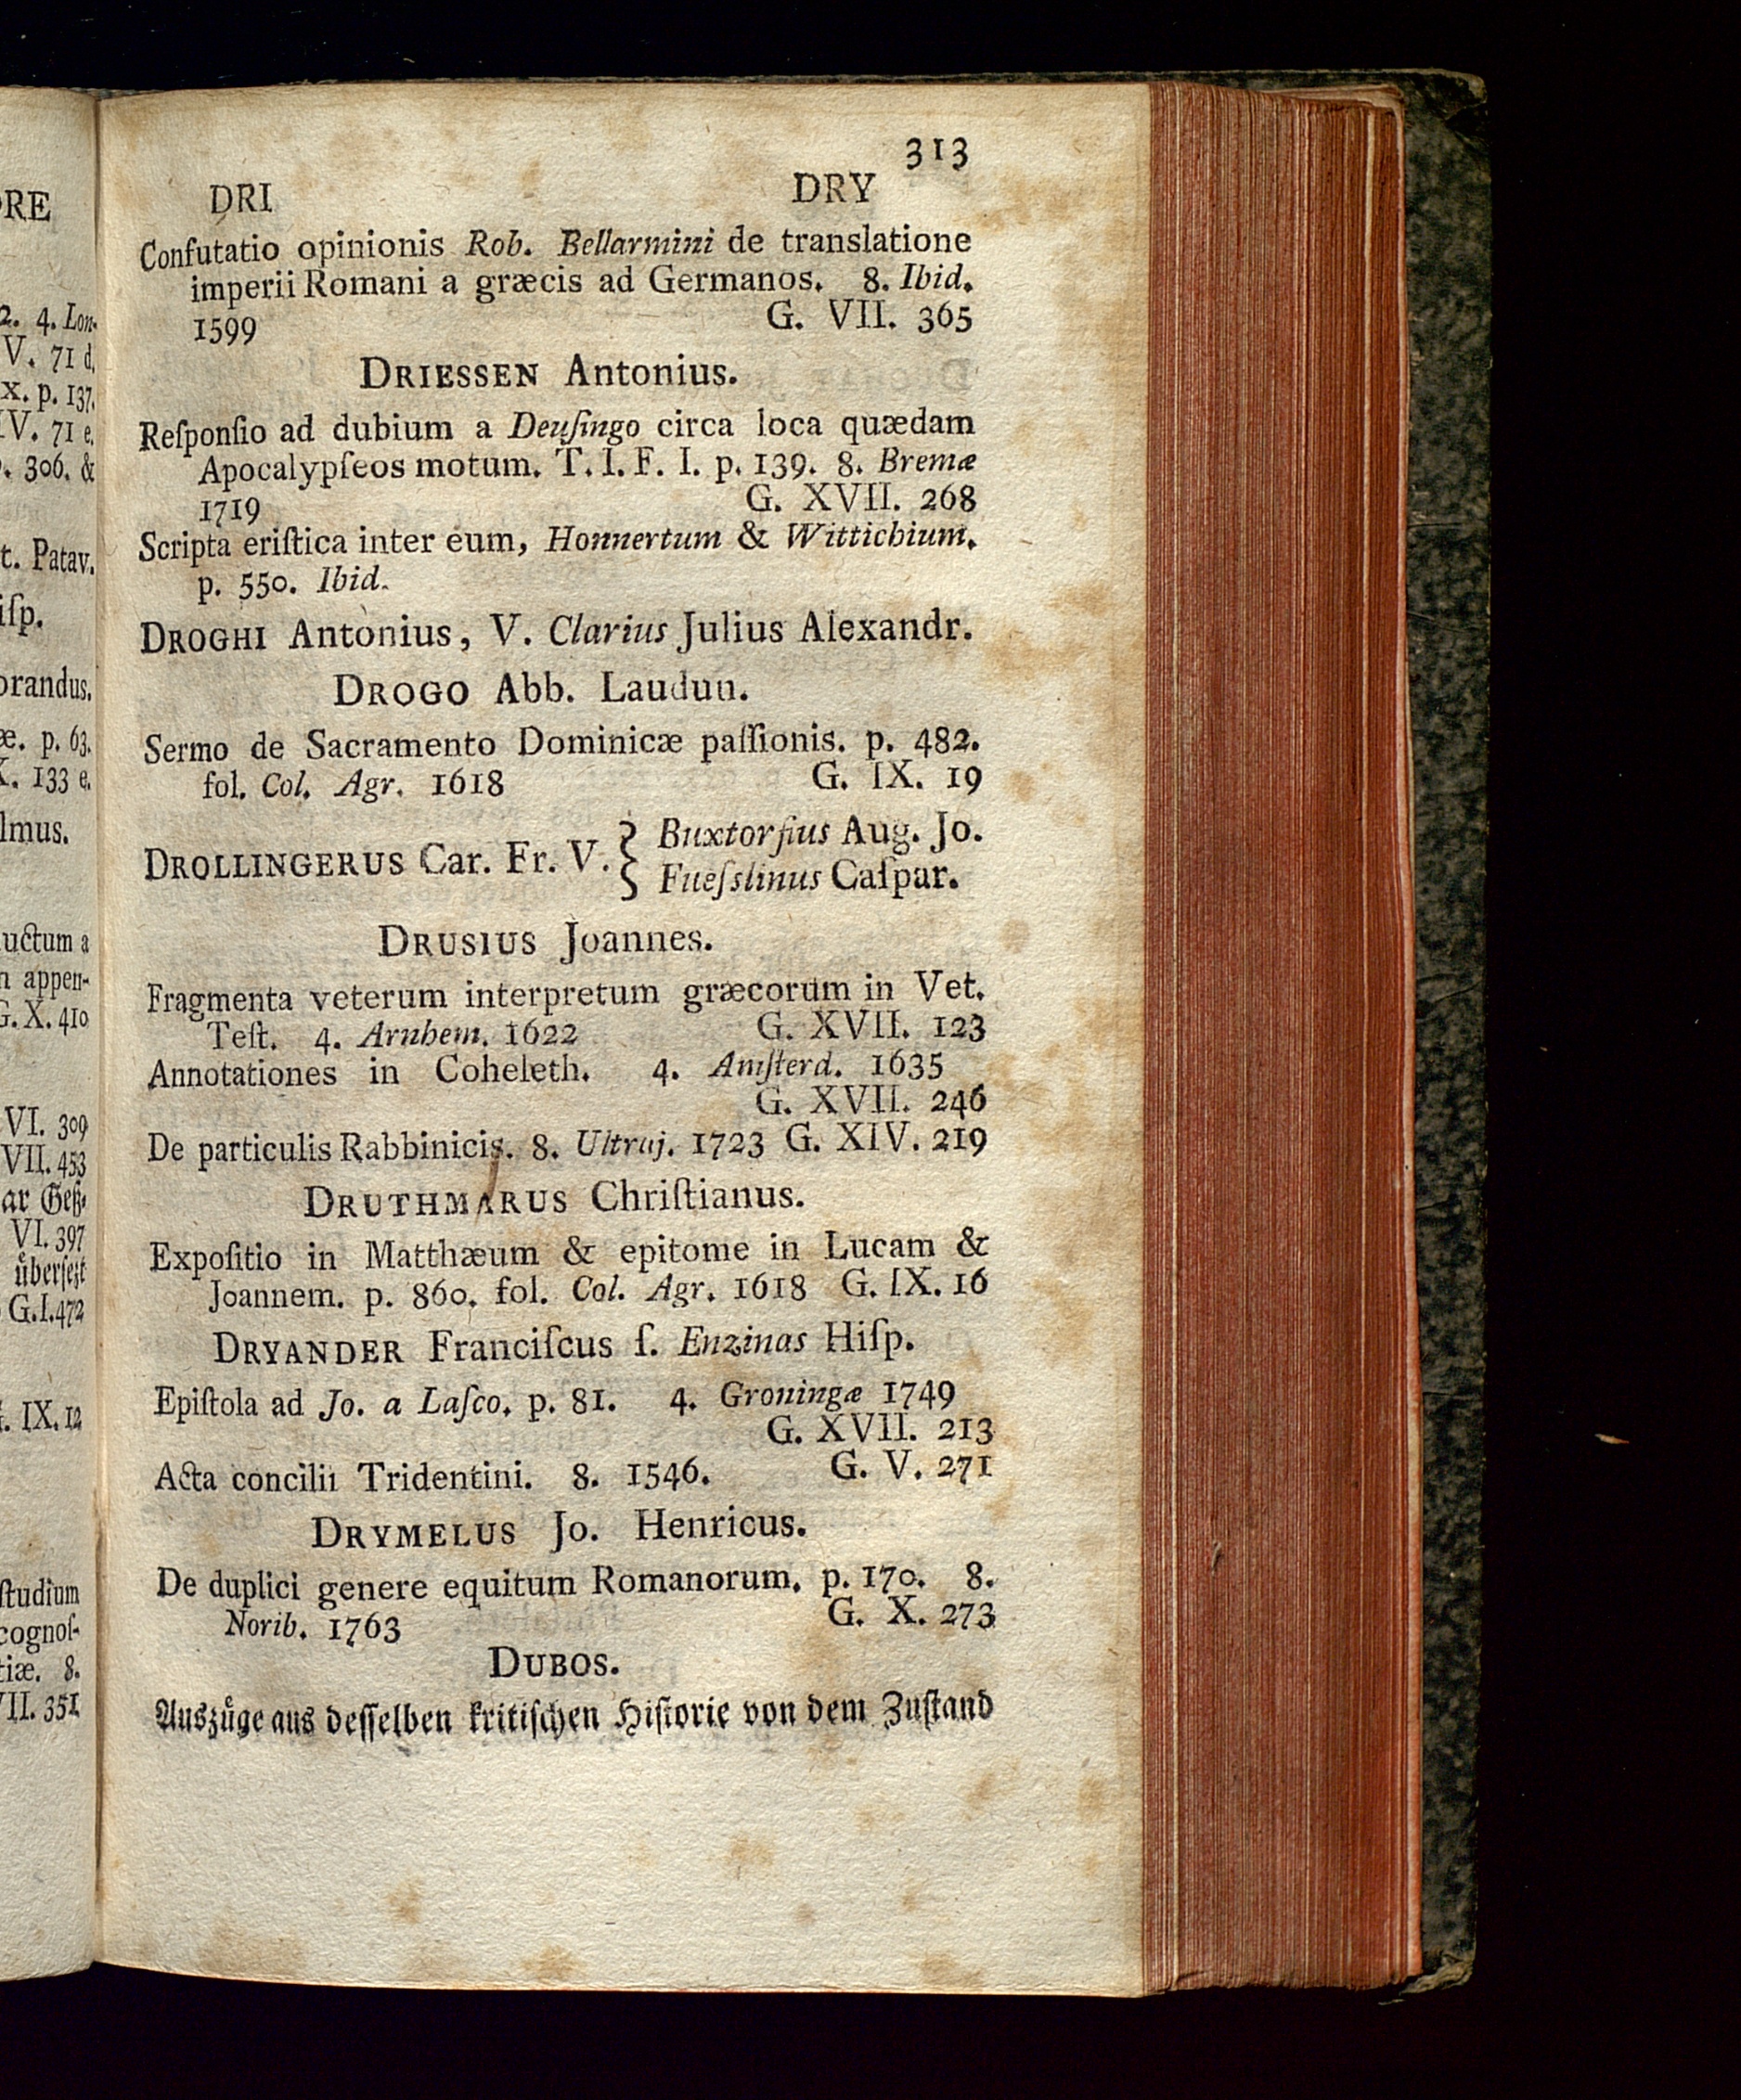 313
DRI DRY
Confutatio opinionis Rob. Bellarmini de translatione
imperii Romani a græcis ad Germanos. 8. Ibid.
1599 G. VII. 365
DRIESSEN Antonius.
Reſponſio ad dubium a Deuſingo circa loca quædam
Apocalypſeos motum. T. I. F. I. p. 139. 8. Bremæ
1719 G. XVII. 268
Scripta eriſtica inter eum, Honnertum & Wittichium.
p. 550. Ibid.
DROGHI Antonius, V. Clarius Julius Alexandr.
DROGO Abb. Laudun.
Sermo de Sacramento Dominicæ paſſionis. p. 482.
fol. Col. Agr. 1618 G. IX. 19
DROLLINGERUS Car. Fr. V. } Buxtorfius Aug. Jo.
Fueſslinus Caſpar.
DRUSIUS Joannes.
Fragmenta veterum interpretum græcorum in Vet.
Teſt. 4. Arnhem. 1622 G. XVII. 123
Annotationes in Coheleth. 4. Amſterd. 1635
G. XVII. 246
De particulis Rabbinicis. 8. Ultraj. 1723 G. XIV. 219
DRUTHMARUS Chriſtianus.
Expoſitio in Matthæum & epitome in Lucam &
Joannem. p. 860. fol. Col. Agr. 1618 G. IX. 16
DRYANDER Franciſcus ſ. Enzinas Hiſp.
Epiſtola ad Jo. a Laſco. p. 81. 4. Groningæ 1749
G. XVII. 213
Acta concilii Tridentini. 8. 1546. G. V. 271
DRYMELUS Jo. Henricus.
De duplici genere equitum Romanorum. p. 170. 8.
Norib. 1763 G. X. 273
DUBOS.
Auszüge aus deſſelben kritiſchen Hiſtorie von dem Zuſtand